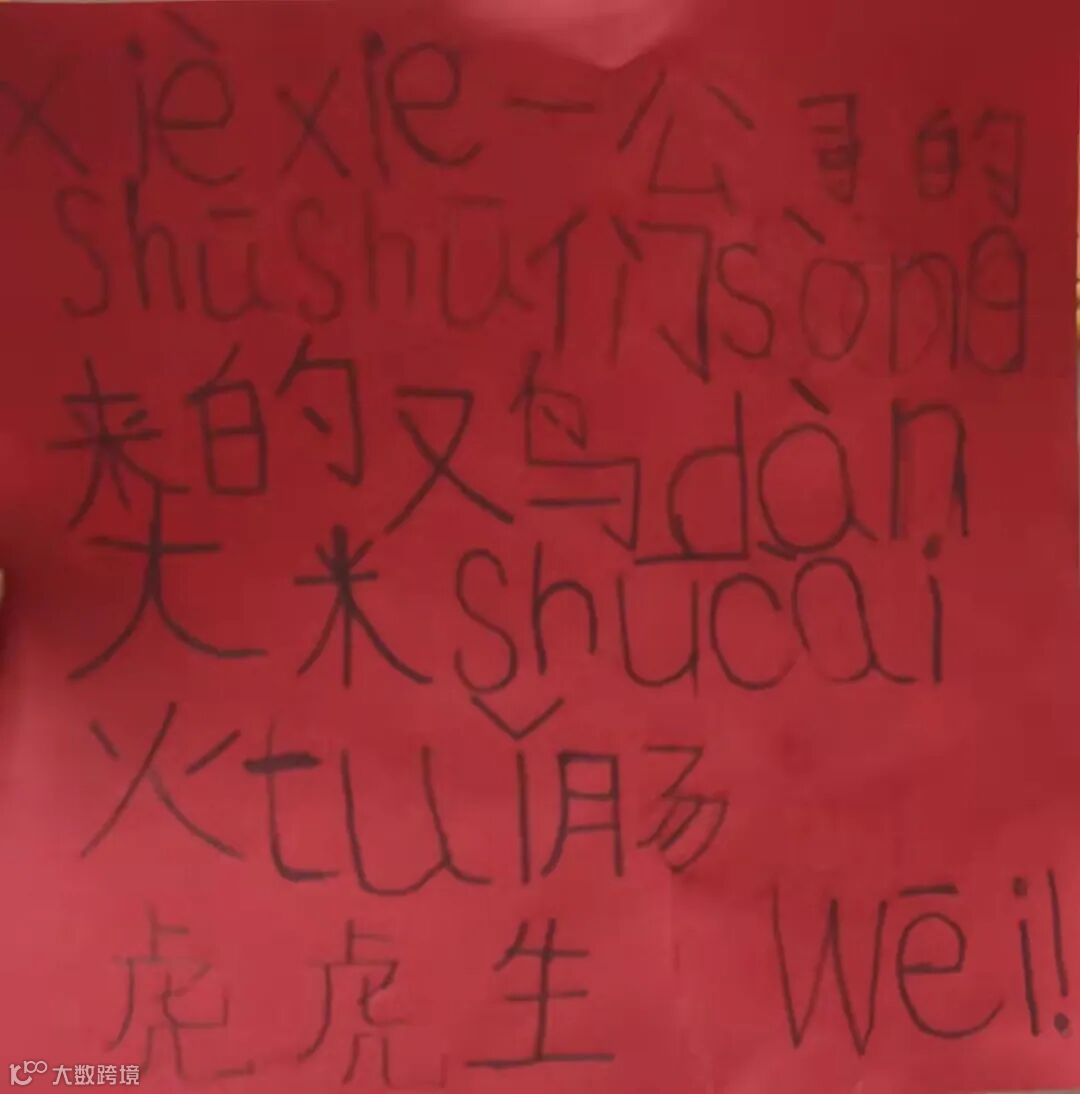 xièxie一公司的
shūshū们sòng
来的又鸟dàn
大米shūcai
火tuǐ肠
虎虎生 wēi!
大数跨境